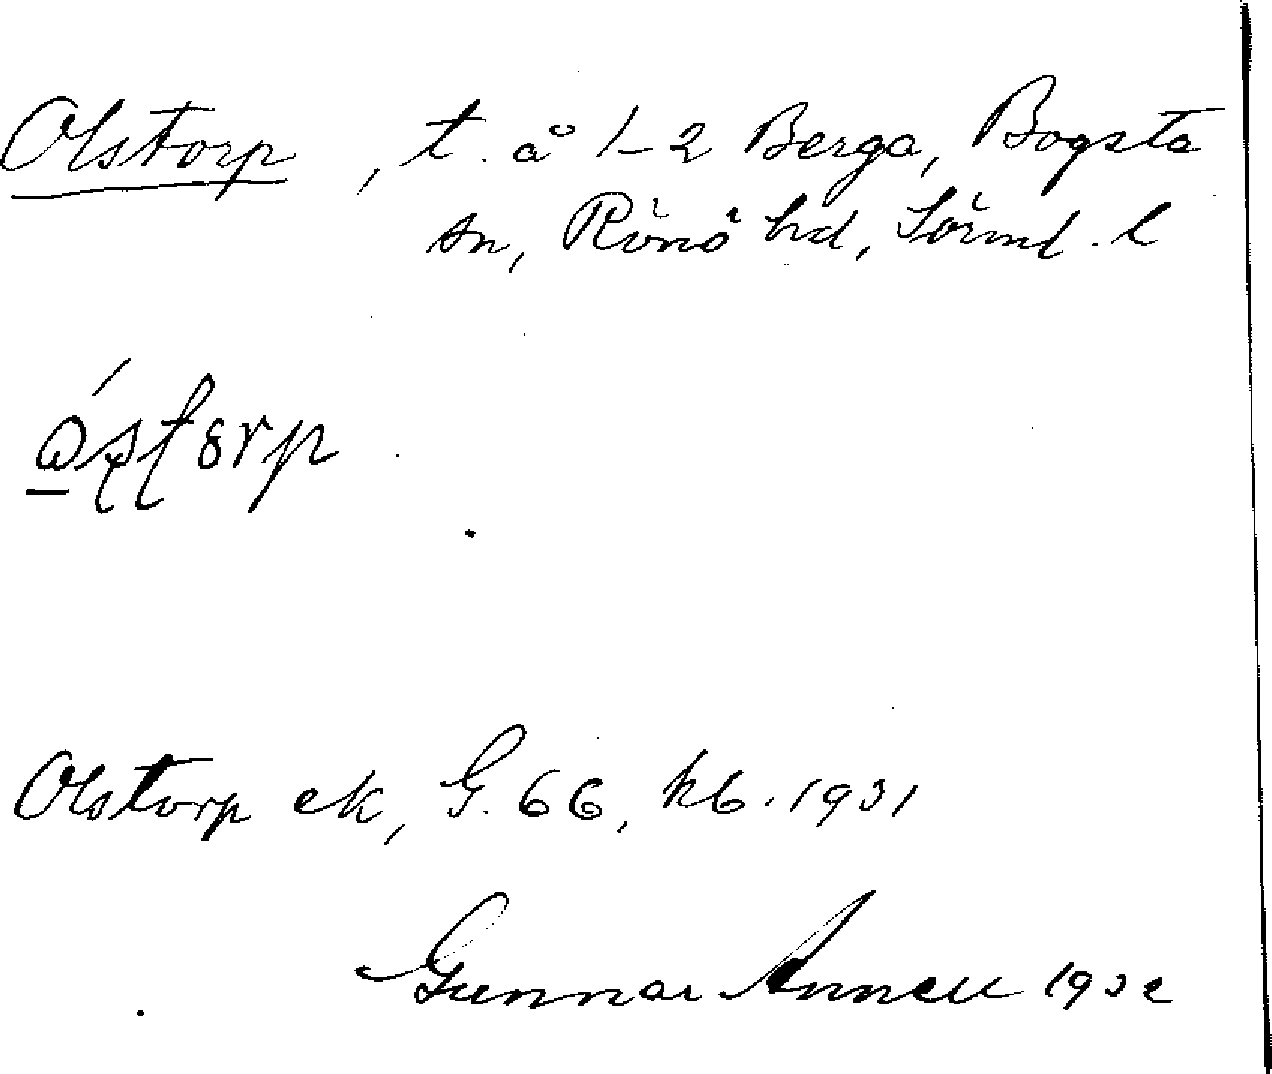 Olstorp, t. å 1-2 Berga, Bogsta
sn, Rönö hd, Sörml. l
Olstorp ek, G. 66, kb. 1931
Gunnar Annell 1932